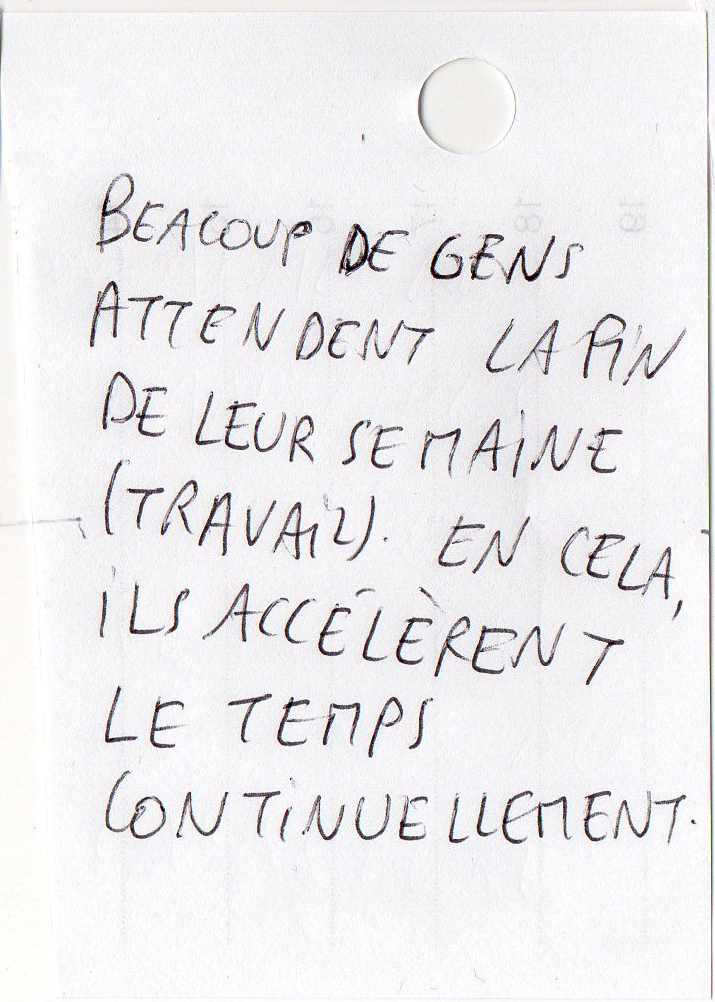 BEACOUP DE GENS
ATTENDENT LA FIN
DE LEUR SEMAINE
(TRAVAIL). EN CELA,
ILS ACCÉLÈRENT
LE TEMPS
CONTINUELLEMENT.